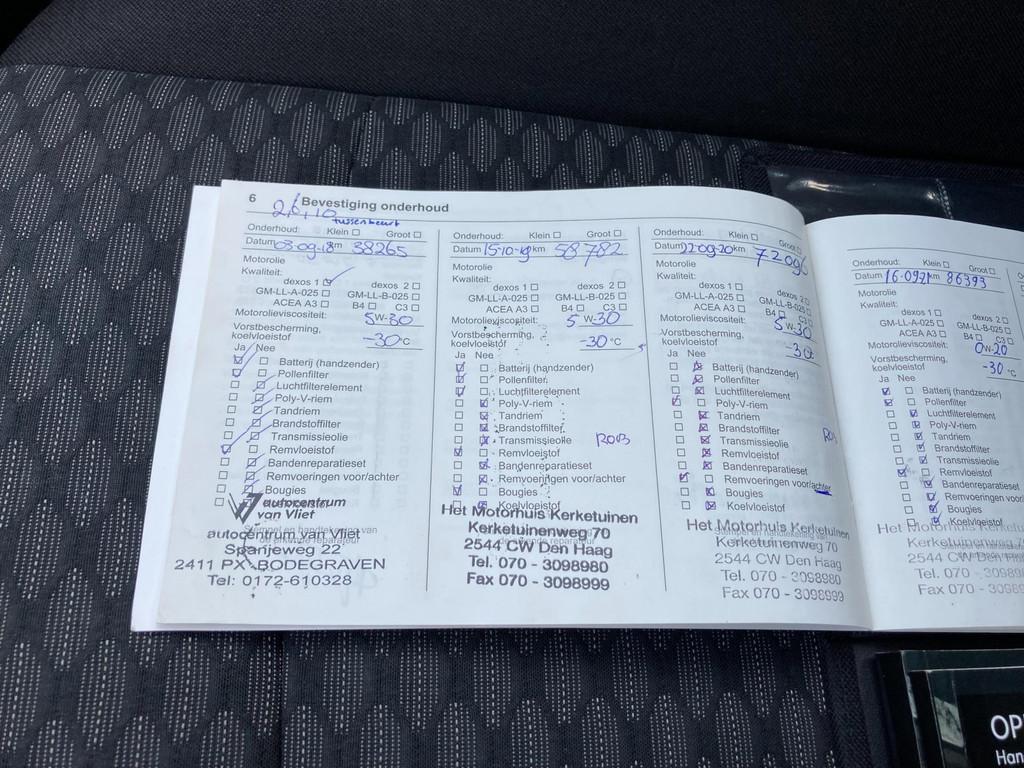 6 Bevestiging onderhoud
2,6,10
tussenbeurt
Onderhoud: Klein Groot
Datum 03-09-18 km 38265
Motorolie
Kwaliteit:
dexos 1 dexos 2
GM-LL-A-025 GM-LL-B-025
ACEA A3 B4 C3
Motorolieviscositeit: 5W-30
Vorstbescherming,
koelvloeistof -30 °C
Ja Nee
Batterij (handzender)
Pollenfilter
Luchtfilterelement
Poly-V-riem
Tandriem
Brandstoffilter
Transmissieolie
Remvloeistof
Bandenreparatieset
Remvoeringen voor/achter
Bougies
Koelvloeistof
autocentrum
van Vliet
Stempel en handtekening van
autocentrum van Vliet
Spanjeweg 22
2411 PX BODEGRAVEN
Tel: 0172-610328
Onderhoud: Klein Groot
Datum 15-10-19 km 58782
Motorolie
Kwaliteit:
dexos 1 dexos 2
GM-LL-A-025 GM-LL-B-025
ACEA A3 B4 C3
Motorolieviscositeit: 5W-30
Vorstbescherming,
koelvloeistof -30 °C
Ja Nee
Batterij (handzender)
Pollenfilter
Luchtfilterelement
Poly-V-riem
Tandriem
Brandstoffilter
Transmissieolie ROB
Remvloeistof
Bandenreparatieset
Remvoeringen voor/achter
Bougies
Koelvloeistof
Het Motorhuis Kerketuinen
Kerketuinenweg 70
2544 CW Den Haag
Tel. 070 - 3098980
Fax 070 - 3098999
Onderhoud: Klein Groot
Datum 02-09-20 km 72096
Motorolie
Kwaliteit:
dexos 1 dexos 2
GM-LL-A-025 GM-LL-B-025
ACEA A3 B4 C3
Motorolieviscositeit: 5W-30
Vorstbescherming,
koelvloeistof -30
Ja Nee
Batterij (handzender)
Pollenfilter
Luchtfilterelement
Poly-V-riem
Tandriem
Brandstoffilter
Transmissieolie
Remvloeistof
Bandenreparatieset
Remvoeringen voor/achter
Bougies
Koelvloeistof
Het Motorhuis Kerketuinen
Kerketuinenweg 70
2544 CW Den Haag
Tel. 070 - 3098980
Fax 070 - 3098999
Onderhoud: Klein Groot
Datum 16-0921 km 86393
Motorolie
Kwaliteit:
dexos 1 dexos 2
GM-LL-A-025 GM-LL-B-025
ACEA A3 B4 C3
Motorolieviscositeit: 0W-20
Vorstbescherming,
koelvloeistof -30 °C
Ja Nee
Batterij (handzender)
Pollenfilter
Luchtfilterelement
Poly-V-riem
Tandriem
Brandstoffilter
Transmissieolie
Remvloeistof
Bandenreparatieset
Remvoeringen voor/
Bougies
Koelvloeistof
Het Motorhuis
Kerketuinenweg
2544 CW Den
Tel. 070 - 3098
Fax 070 - 3098
OP
Han